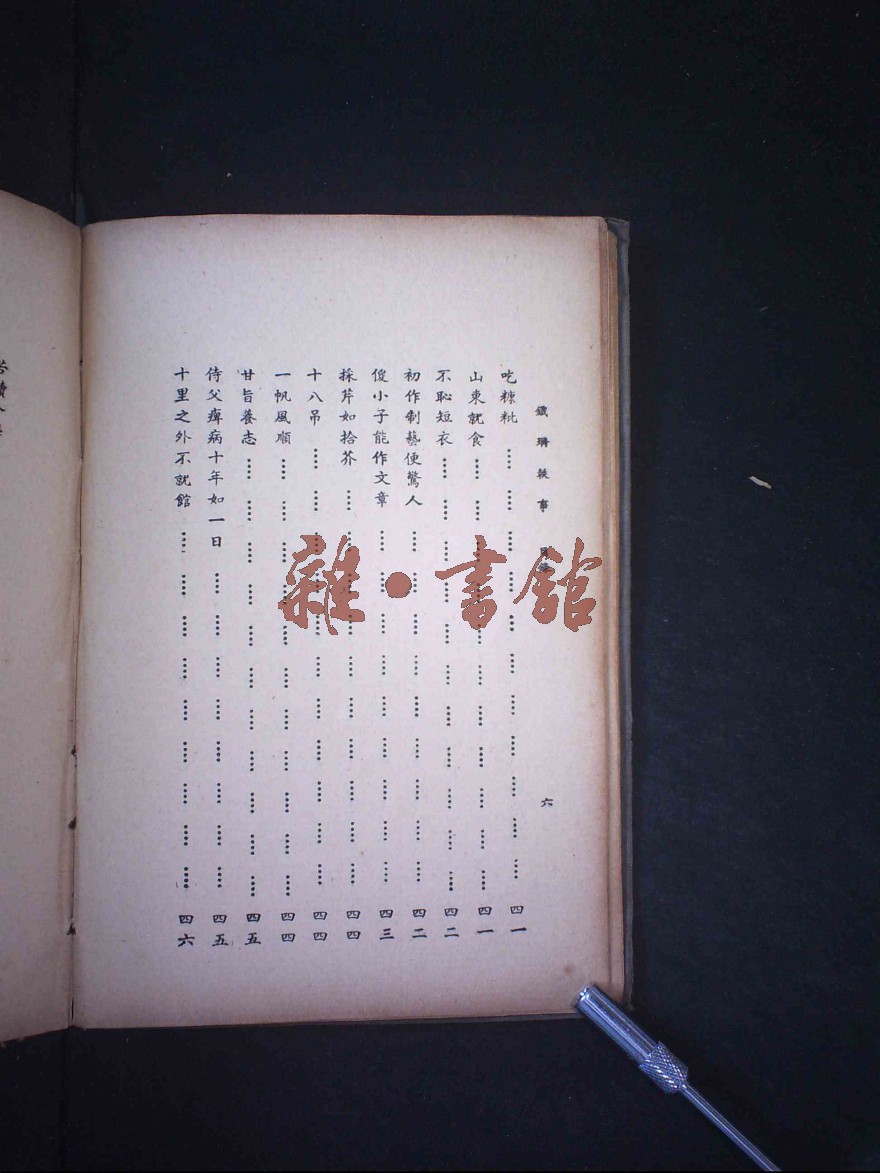 鐵珊軼事 目錄
六
吃糠粃………四一
山東就食………四一
不恥短衣………四二
初作制藝便驚人………四二
傻小子能作文章………四三
採芹如拾芥………四四
十八吊………四四
一帆風順………四四
甘旨養志………四五
侍父痺病十年如一日………四五
十里之外不就館………四六
雜·書館